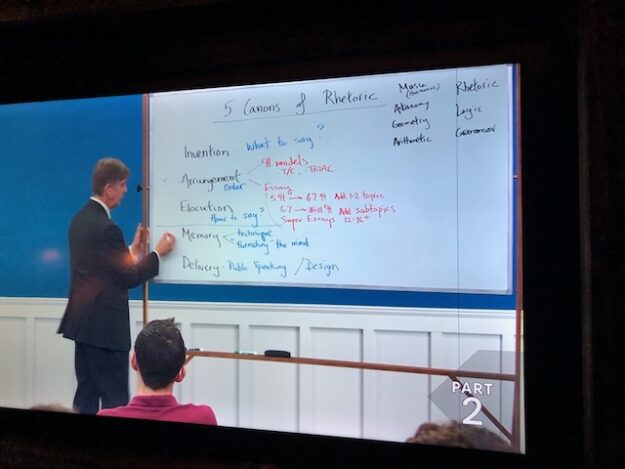 5 Canons of Rhetoric
Music Rhetoric
(Harmonics)
Astronomy Logic
Geometry Grammar
Arithmetic
Invention What to say?
Arrangement
order
¶ models
T/C, - TRIAC
Essay
5 ¶ → 6-7 ¶ Add 1-2 topics
6-7 → ¶ Add subtopics
Super Essays 12-16+
Elocution
How to say?
Memory
technique
furnishing the mind
Delivery - Public Speaking / Design
PART
2